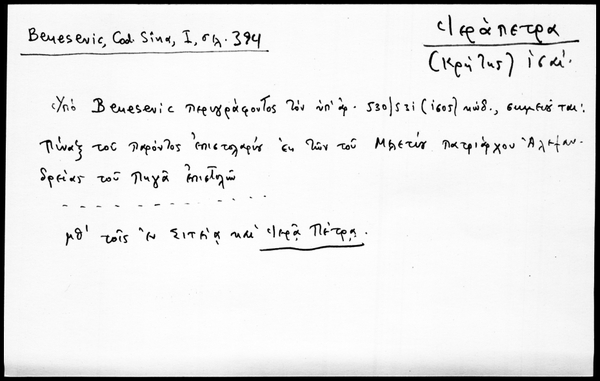 Benesevic, Cod. Sina, I, σελ. 394
Ἱεράπετρα
(Κρήτης) ις' αἰ.
Ὑπὸ Benesevic περιγράφοντος τὸν ὑπ' ἀρ. 530/531 (ις' ος) κώδ., σημειοῦται:
Πίναξ τοῦ παρόντος ἐπιστολαρίου ἐκ τῶν τοῦ Μελετίου πατριάρχου Ἀλεξαν-
δρείας τοῦ Πηγᾶ ἐπιστολῶν
μθ' τοῖς ἐν Σιτείᾳ καὶ Ἱερᾷ Πέτρᾳ.